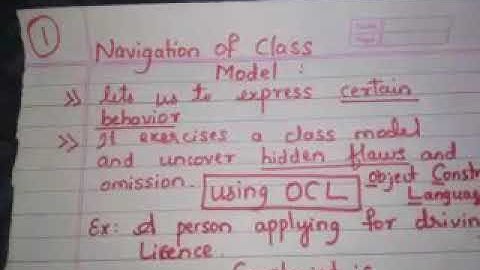 1
Navigation of Class
Model :
>> lets us to express certain
behavior
>> It exercises a class model
and uncover hidden flaws and
omission. using OCL object Constr
Languag
Ex: A person applying for drivin
Licence.